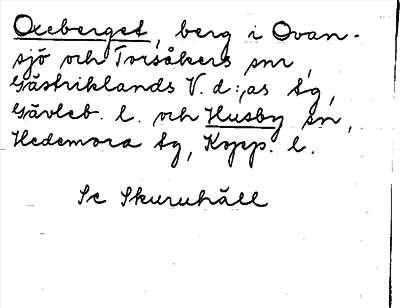 Oxeberget, berg i Ovan-
sjö och Torsåkers snr,
Gästriklands V. d:as tg,
Gävleb. l. och Husby sn,
Hedemora tg, Kopp. l.
Se Skuruhäll